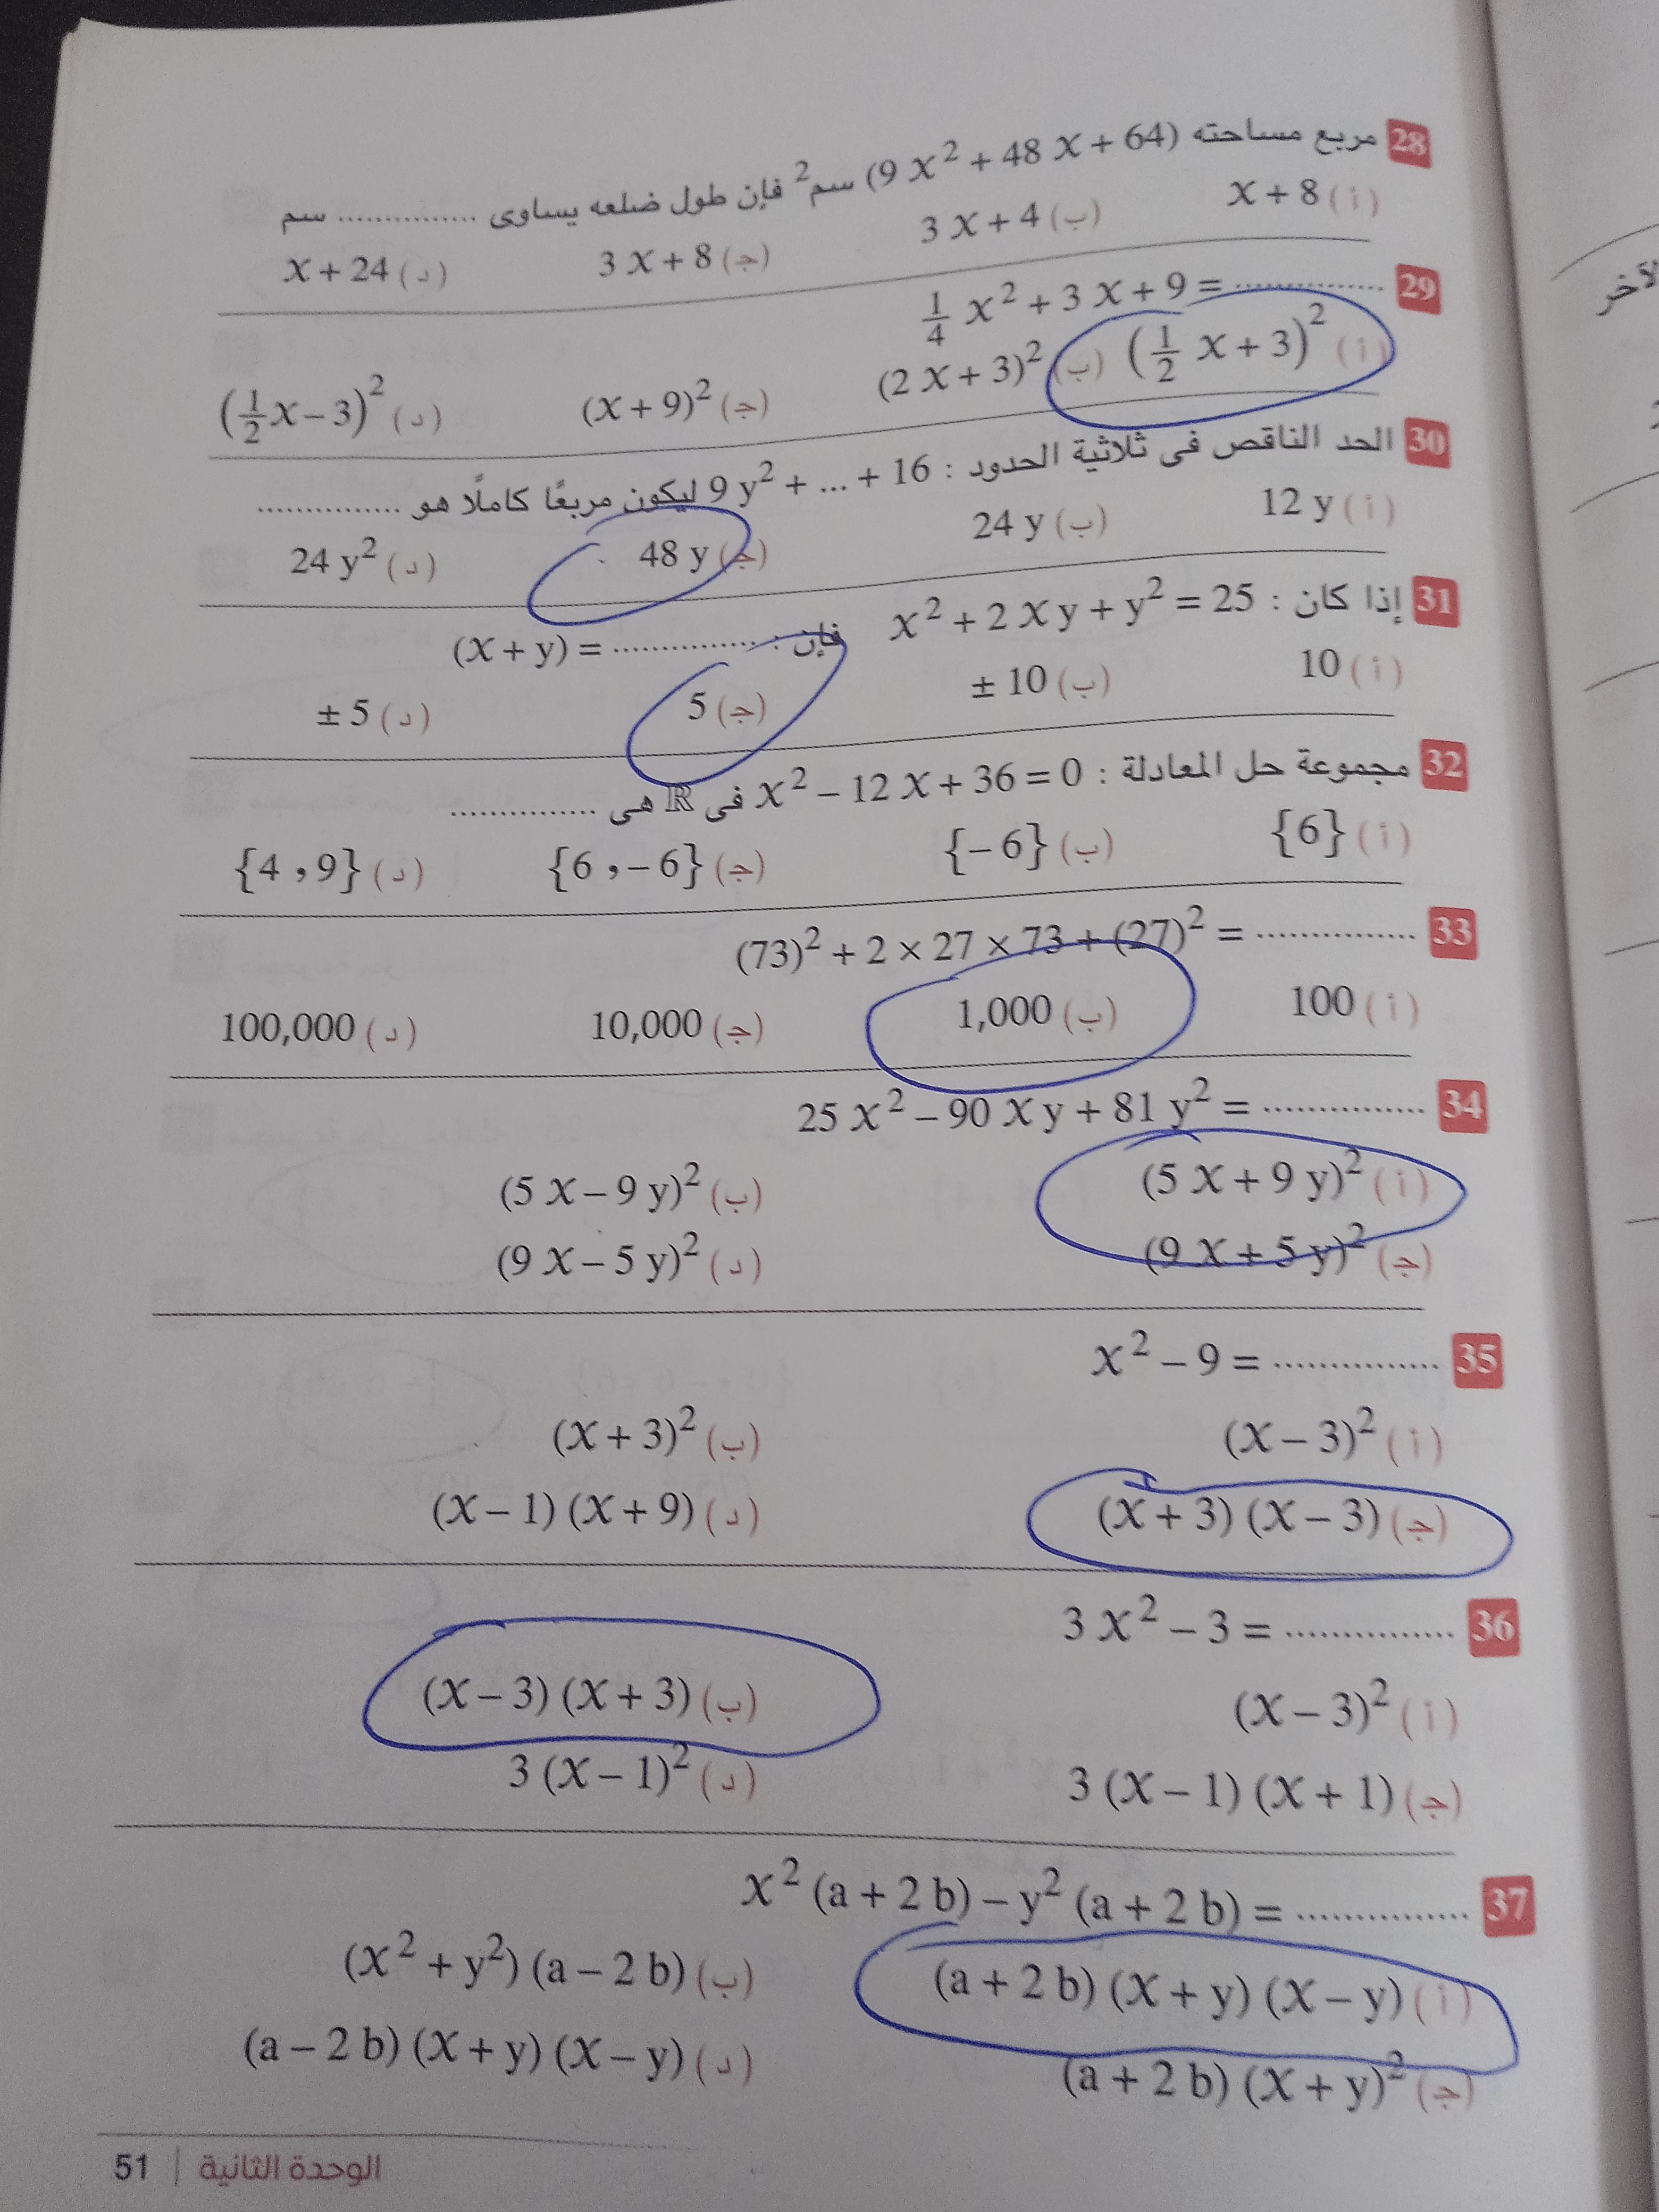 28 مربع مساحته (9 x² + 48 x + 64) سم² فإن طول ضلعه يساوى ............... سم
(أ) x + 8 (ب) 3 x + 4 (جـ) 3 x + 8 (د) x + 24
29 ¼ x² + 3 x + 9 = ...............
(أ) (½ x + 3)² (ب) (2 x + 3)² (جـ) (x + 9)² (د) (½ x – 3)²
30 الحد الناقص فى ثلاثية الحدود : 9 y² + ... + 16 ليكون مربعًا كاملًا هو ...............
(أ) 12 y (ب) 24 y (جـ) 48 y (د) 24 y²
31 إذا كان : x² + 2 x y + y² = 25 فإن : ............... = (x + y)
(أ) 10 (ب) ± 10 (جـ) 5 (د) ± 5
32 مجموعة حل المعادلة : x² – 12 x + 36 = 0 فى ℝ هى ...............
(أ) {6} (ب) {– 6} (جـ) {6 ، – 6} (د) {4 ، 9}
33 (73)² + 2 × 27 × 73 + (27)² = ...............
(أ) 100 (ب) 1,000 (جـ) 10,000 (د) 100,000
34 25 x² – 90 x y + 81 y² = ...............
(أ) (5 x + 9 y)² (ب) (5 x – 9 y)²
(جـ) (9 x + 5 y)² (د) (9 x – 5 y)²
35 x² – 9 = ...............
(أ) (x – 3)² (ب) (x + 3)²
(جـ) (x + 3) (x – 3) (د) (x – 1) (x + 9)
36 3 x² – 3 = ...............
(أ) (x – 3)² (ب) (x – 3) (x + 3)
(جـ) 3 (x – 1) (x + 1) (د) 3 (x – 1)²
37 x² (a + 2 b) – y² (a + 2 b) = ...............
(أ) (a + 2 b) (x + y) (x – y) (ب) (x² + y²) (a – 2 b)
(جـ) (a + 2 b) (x + y)² (د) (a – 2 b) (x + y) (x – y)
الوحدة الثانية | 51
الآخر